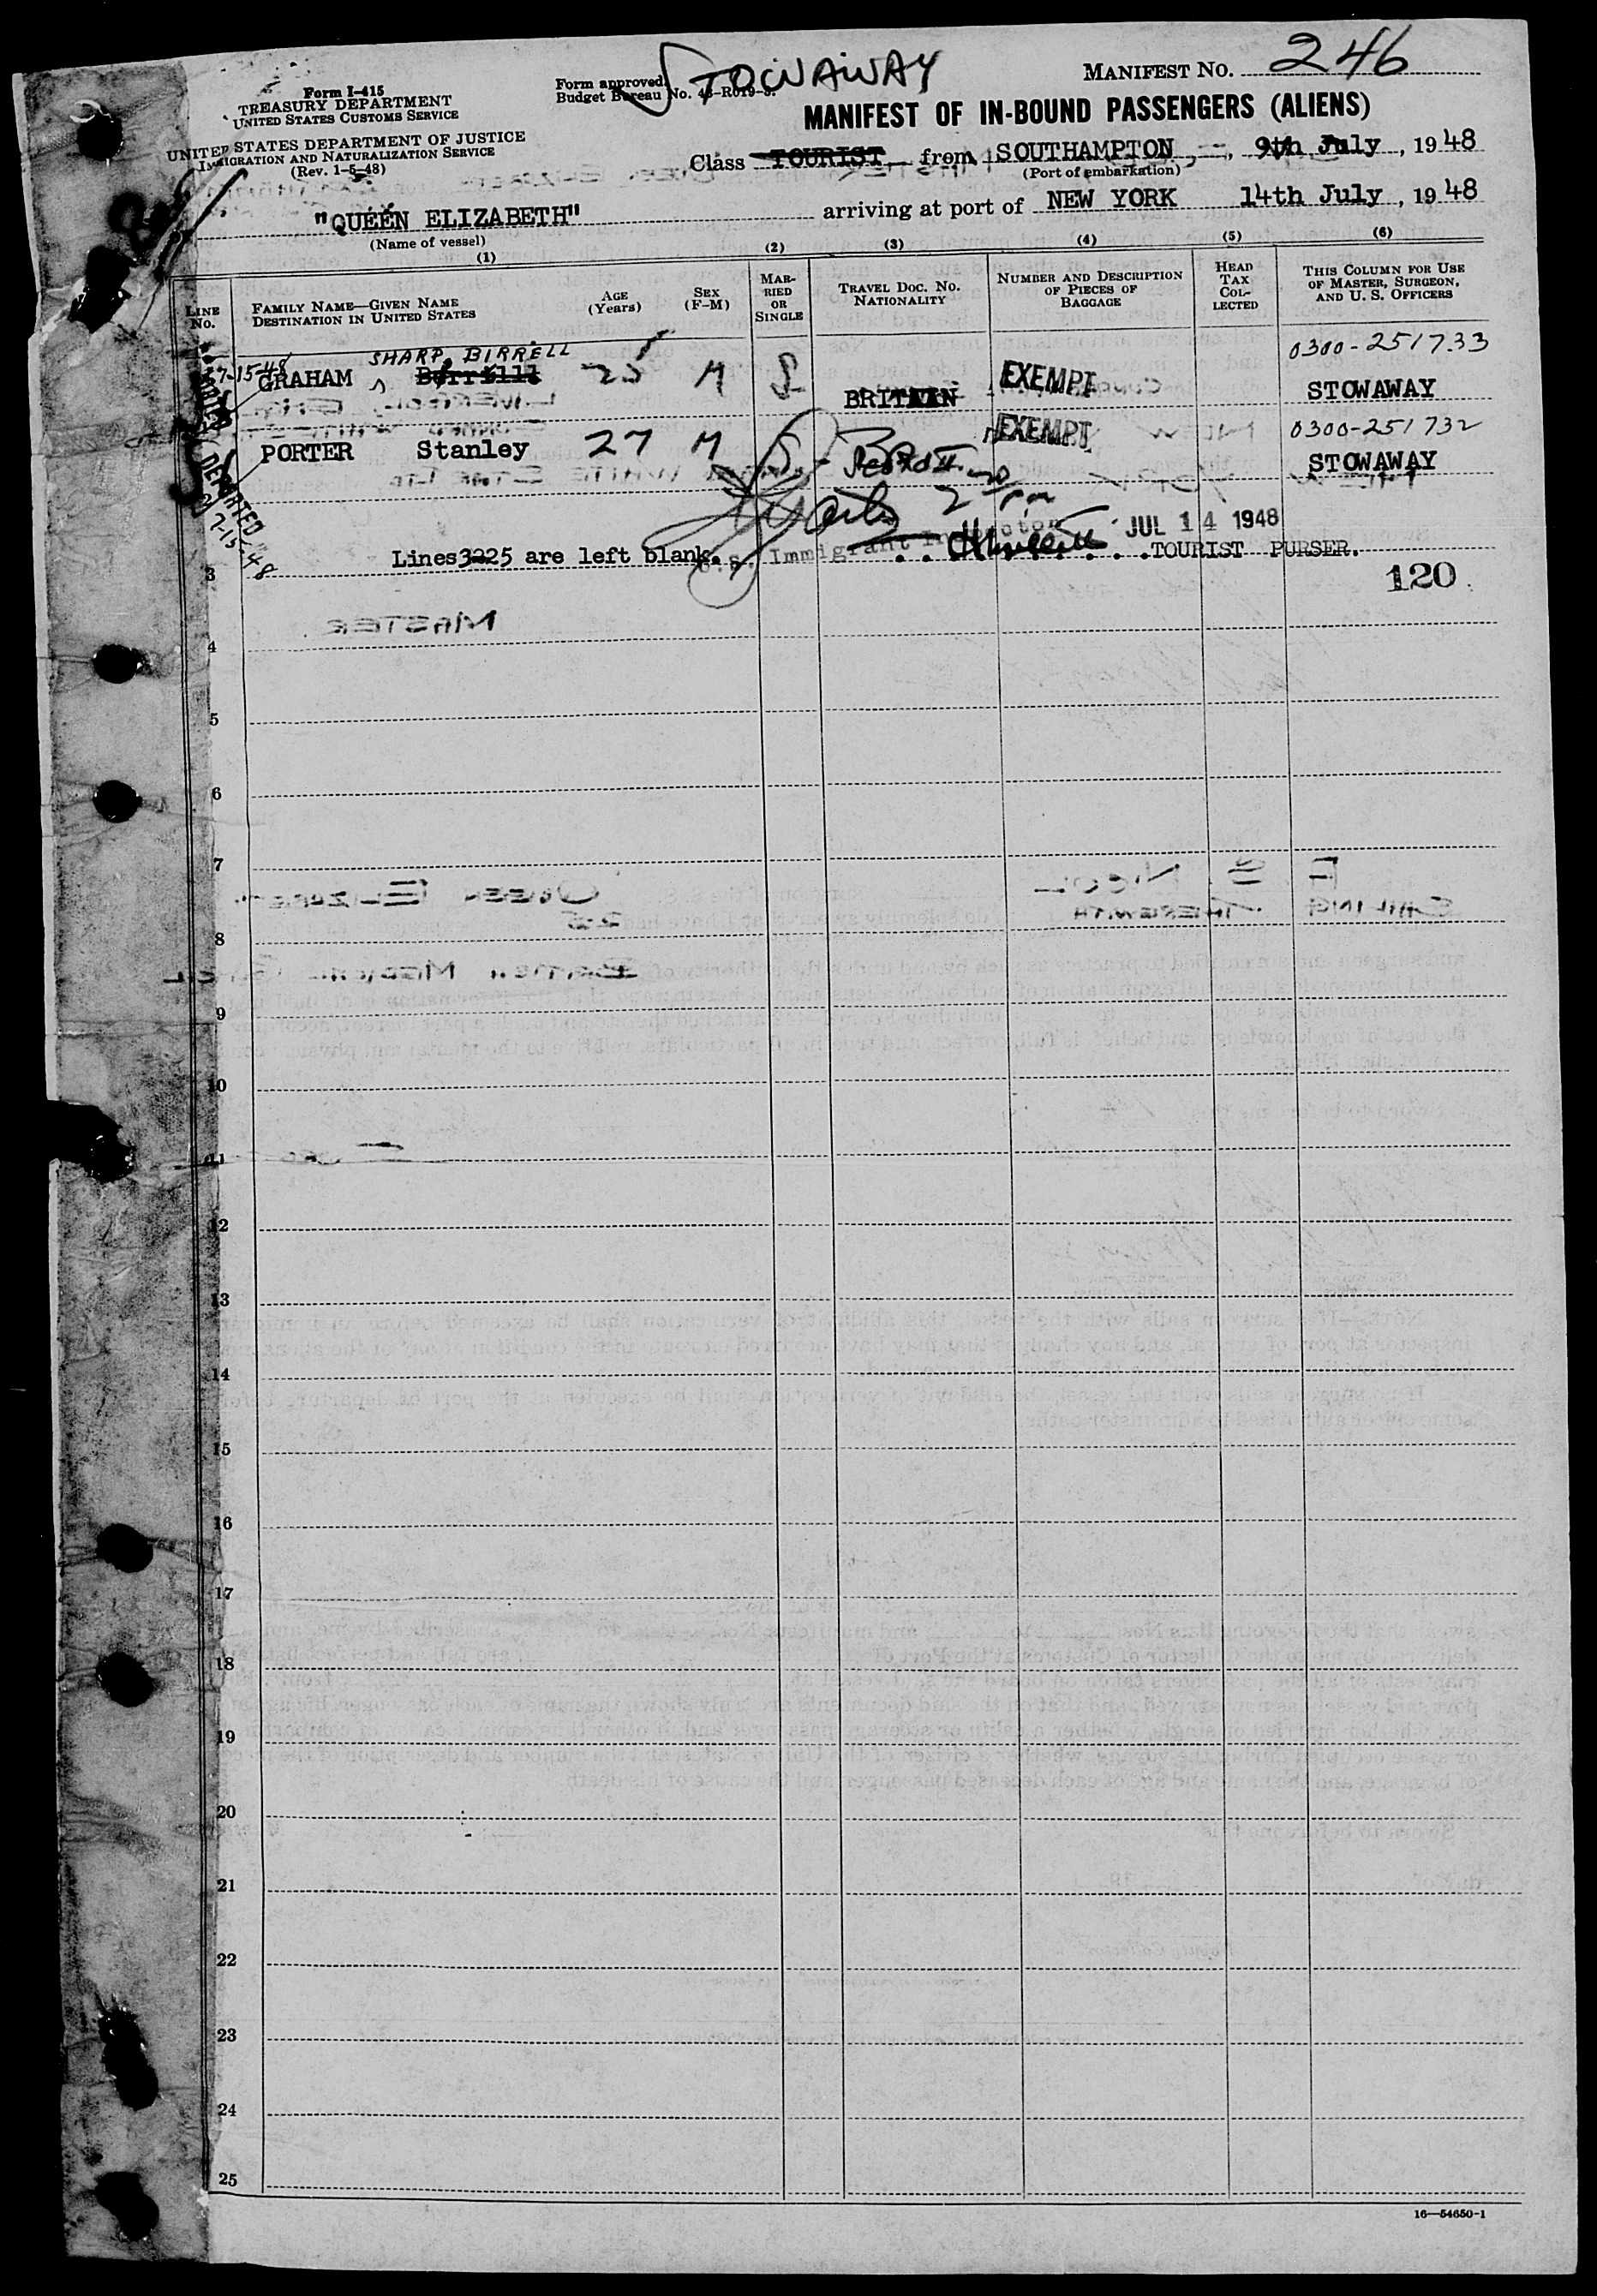 Form I-415
TREASURY DEPARTMENT
UNITED STATES CUSTOMS SERVICE
UNITED STATES DEPARTMENT OF JUSTICE
IMMIGRATION AND NATURALIZATION SERVICE
(Rev. 1-5-48)
Form approved
Budget Bureau No. 43-R019-3.
STOWAWAY
MANIFEST NO. 246
MANIFEST OF IN-BOUND PASSENGERS (ALIENS)
Class TOURIST from SOUTHAMPTON, 9th July, 1948
(Port of embarkation)
"QUEEN ELIZABETH" arriving at port of NEW YORK 14th July, 1948
(Name of vessel)
(1) (2) (3) (4) (5) (6)
LINE NO.
FAMILY NAME—GIVEN NAME
DESTINATION IN UNITED STATES
AGE (Years)
SEX (F-M)
MARRIED OR SINGLE
TRAVEL DOC. NO.
NATIONALITY
NUMBER AND DESCRIPTION OF PIECES OF BAGGAGE
HEAD TAX COLLECTED
THIS COLUMN FOR USE OF MASTER, SURGEON, AND U. S. OFFICERS
0300-251733
7-15-48 SHARP, BIRRELL
GRAHAM 25 M S BRITAIN EXEMPT STOWAWAY
0300-251732
PORTER Stanley 27 M S EXEMPT STOWAWAY
DEPORTED 7-15-48
2 30 pm
U.S. Immigrant Inspector JUL 14 1948
Lines 3 25 are left blank. TOURIST PURSER.
120
3
4
5
6
7
8
9
10
11
12
13
14
15
16
17
18
19
20
21
22
23
24
25
16—54650-1